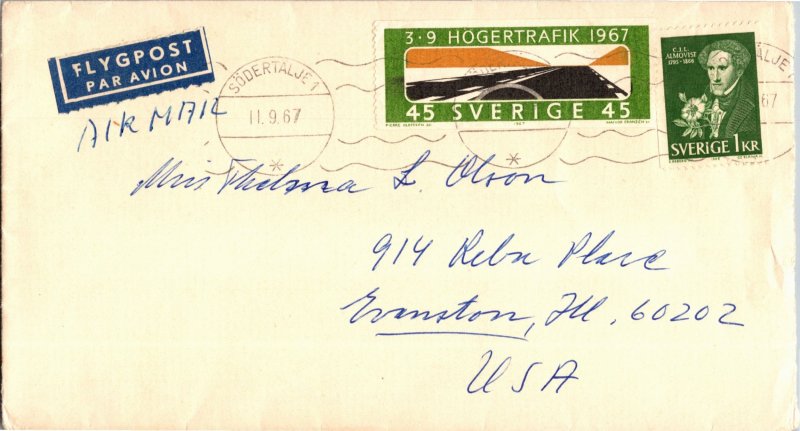 FLYGPOST
PAR AVION
AIR MAIL
SÖDERTÄLJE 1
11.9.67
3·9 HÖGERTRAFIK 1967
45 SVERIGE 45
C.J.L.
ALMQVIST
1793-1866
SVERIGE 1 KR
67
Miss Thelma L. Olson
914 Reba Place
Evanston, Ill. 60202
USA